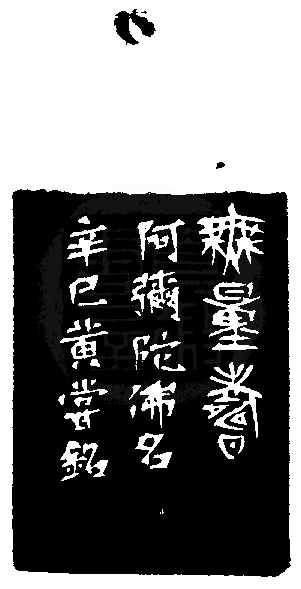 無量壽
阿彌陀佛名
辛巳黃嘗銘